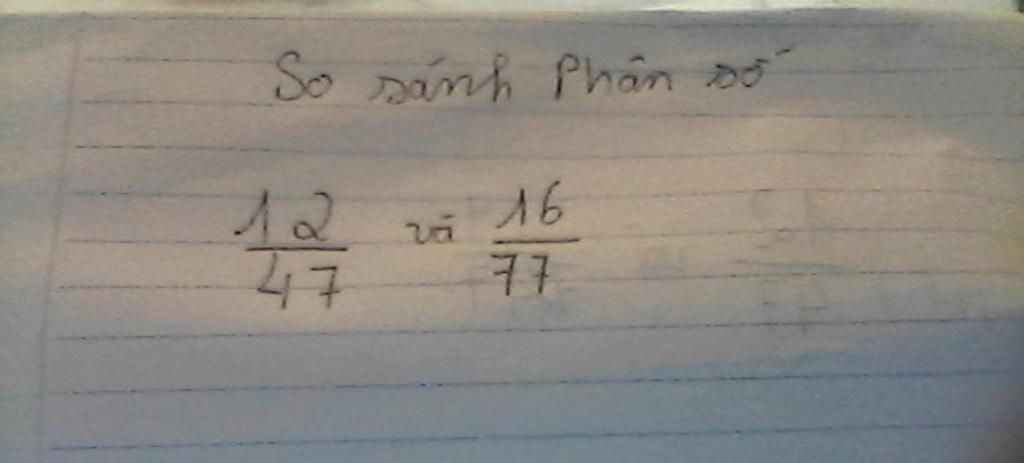 So sánh Phân số
12 và 16
47 77